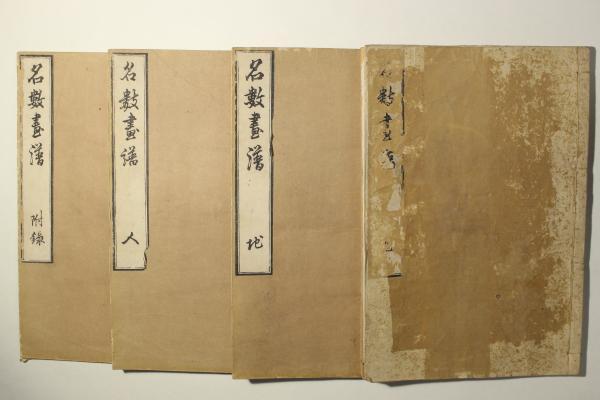 名數畫譜
附錄
名數畫譜
人
名數畫譜
地
名數畫譜